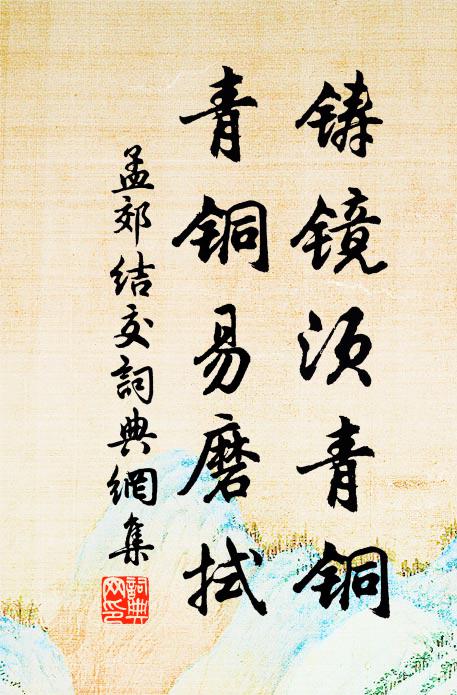 铸镜须青铜
青铜易磨拭
孟郊结交詞典網集
詞典